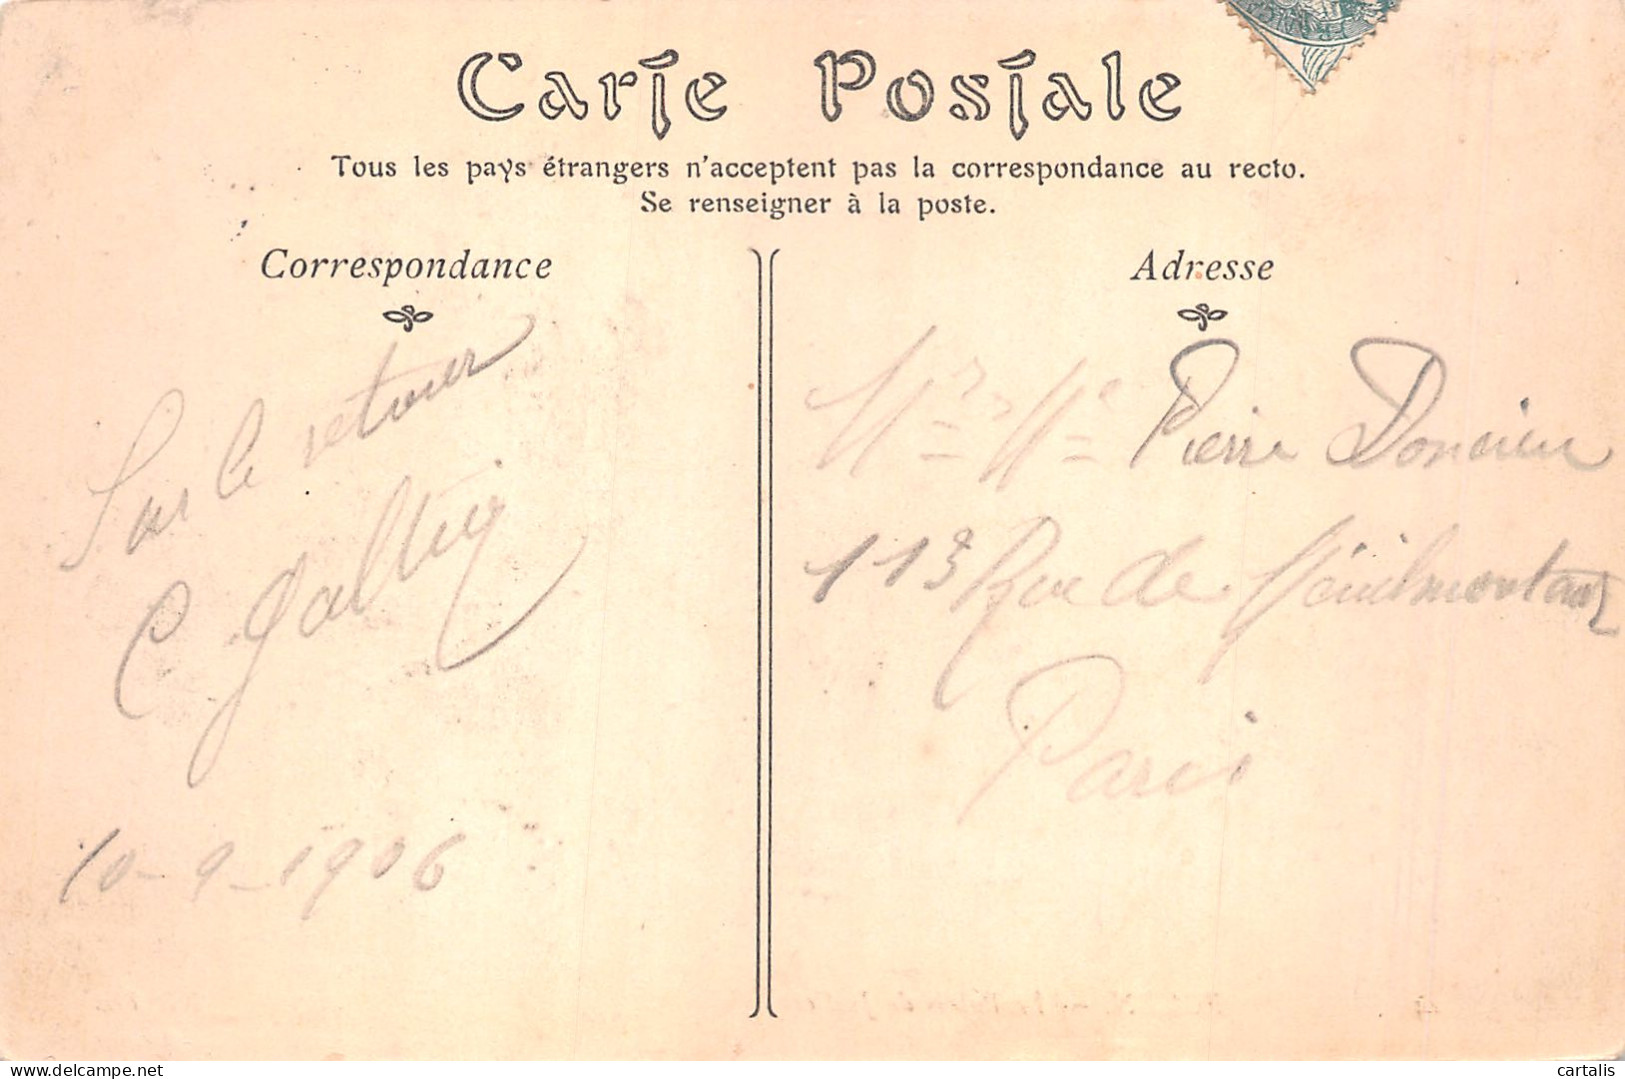 Carte Postale
Tous les pays étrangers n'acceptent pas la correspondance au recto.
Se renseigner à la poste.
Correspondance
Sur le retour
C.
10-9-1906
Adresse
Mr Me Pierre
113 Rue de Ménilmontant
Paris
delcampe.net
cartalis